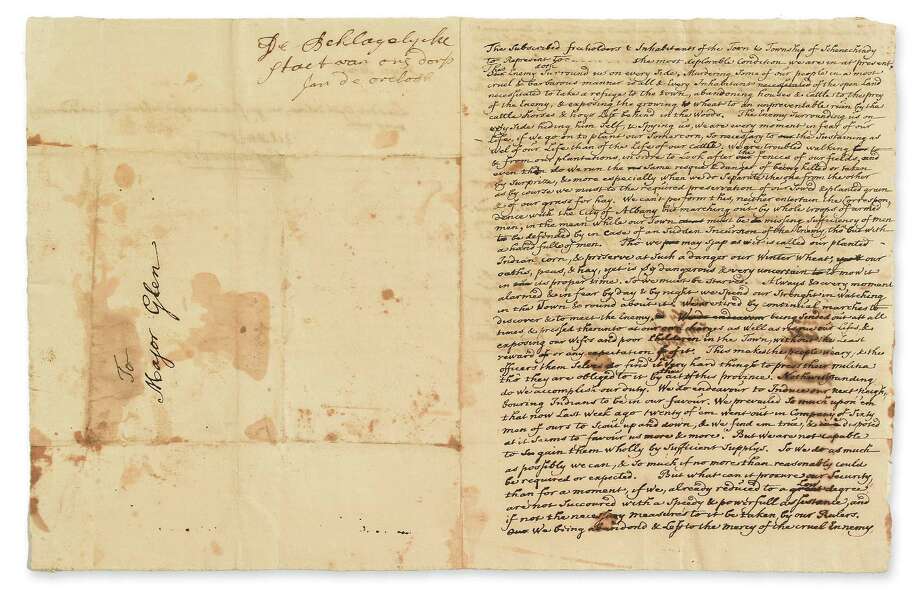 De Beklagelycke
staet van ons dorp
To
Major Glen
The Subscribed freeholders & Inhabitants of the Town & Township of Schenechtady
to Represent to the most deplorable Condition we are in at present.
The Enemy doth Surround us on every Side, Murdering Some of our people in a most
cruel & barbarous manner & all & Every Inhabitant of the open Land
necessitated to take a refuge to the Town, abandoning houses & Cattle to the prey
of the Enemy, & exposing the growing wheat to an unpreventable ruin by the
cattle horses & hogs Left behind in the Woods. The Enemy Surrounding us on
every Side hiding him Self, & Spying us, we are every moment in fear of our
Life, if we go on to plant our Indian corn, So necessary to the Sustaining as
wel of our Life, than of the Life of our Cattle, we are troubled walking to
& from our plantations, in ordre to Look after the fences of our fields, and
even then do we run the Same risque & danger of being killed or taken
by Surprize, & more especially when we do Separate the one from the other
as by course we must to the required preservation of our Sowed & planted grain
& of our grass for hay. We can't perform this, neither entertain the Correspon,
dence with the City of Albany but marching out by whole troops of armed
men, in the mean while our Town must be missing Sufficiency of men
to be defended by in Case of an Sudden Incursion of the Enemy, the but with
a hand full of men. Tho we may as it is called our planted
Indian corn, & preserve at Such a danger our Winter Wheat, our
oaths, peas, & hay, yet is So dangerous & every uncertain to mow it
in its proper time. So we must be Starved. Always & every moment
alarmed & in fear by day & by night we Spend our Strenght in Watching
in the Town & round about it, we are tired by continual marches to
discover & to meet the Enemy, being Sended out att all
times & pressed thereunto as our own charges as Well as risque our Lifes &
exposing our Wifes and poor Children in the Town without the Least
reward of or any expectation of it. This makes the people weary, & the
officers them Selves do find it very hard things to press their militia
tho they are obliged to it by act of this province. Nothwithstanding
do we accomplish our duty. We do endeavour to Induce our neigh,
bouring Indians to be in our favour. We prevailed So much upon 'em
that now Last Week ago twenty of em went out in Company of Sixty
men of ours to Scout up and down, & we find em true, & disposed
at it Seems to favour us more & more. But we are not capable
to So gain them wholly by Sufficient Supplys. So we do as much
as possibly we can, & So much if no more than reasonably could
be required or expected. But what can it procure our Security
than for a moment, if we, already reduced to a Low degree
are not Succoured with a Speedy & powerfull assistance, and
if not the necessary measures to it be taken by our Rulers.
We being abandond & Left to the Mercy of the cruel Ennemy